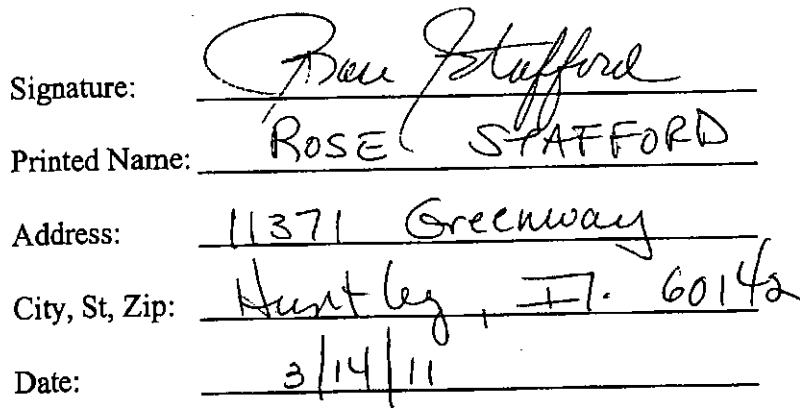 Signature: Rose Stafford
Printed Name: ROSE STAFFORD
Address: 11371 Greenway
City, St, Zip: Huntley, Il. 60142
Date: 3/14/11